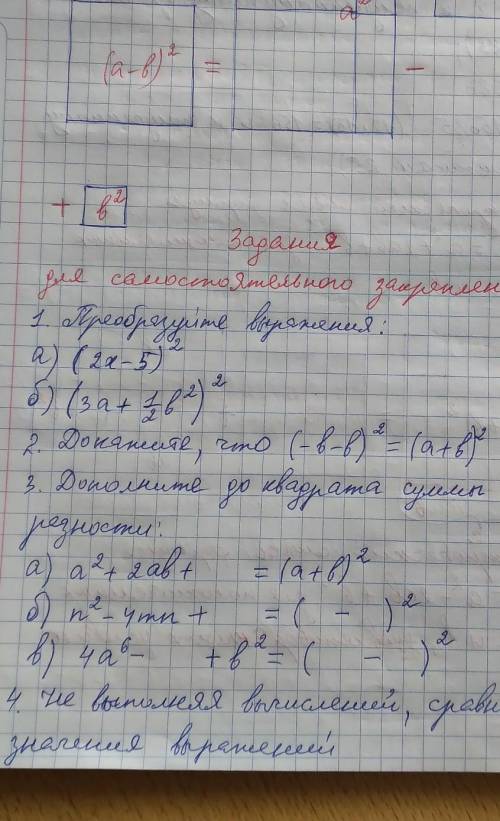 a²
(а-в)² = -
+ в²
Задания
для самостоятельного закреплен
1. Преобразуйте выражения:
а) (2x-5)²
б) (3a + 1/2 в²)²
2. Докажите, что (-в-в)² = (а+в)²
3. Дополните до квадрата суммы
разности:
а) а² + 2ав + = (а+в)²
б) n² - 4mn + = ( - )²
в) 4а⁶ - + в² = ( - )²
4. Не выполняя вычислений, сравн
значения выражений